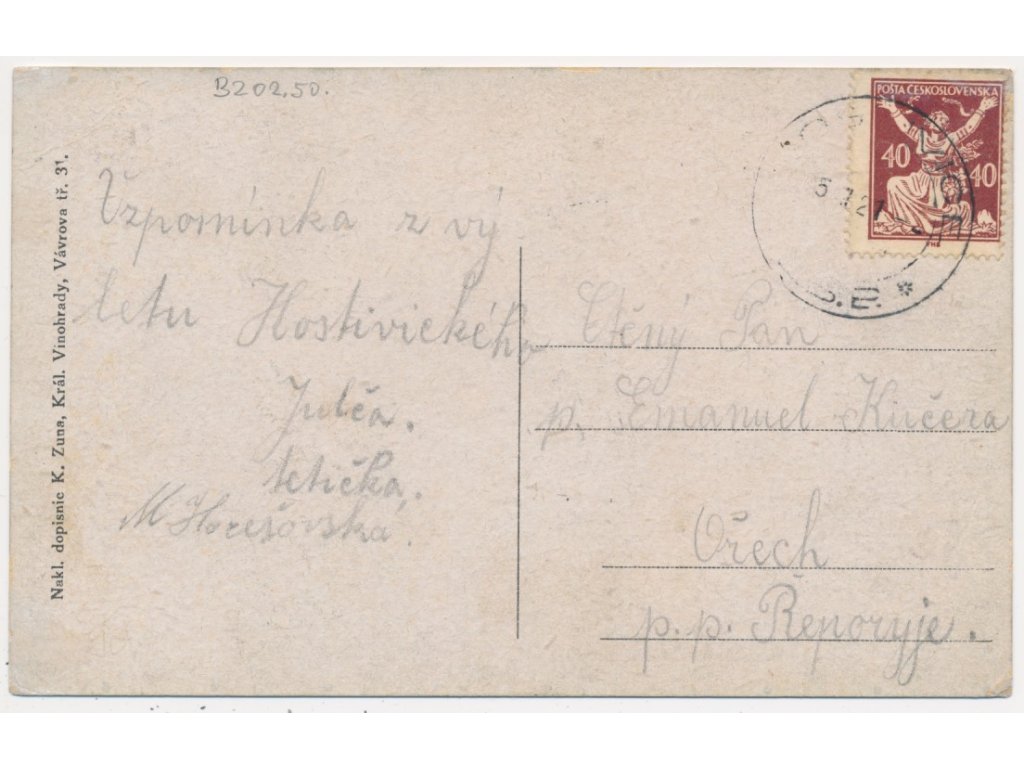 B202,50.
POŠTA ČESKOSLOVENSKA
40 40
5 12
Vzpomínka z vý
letu Hostivického
Julča.
tetička.
M Horešovská.
Ctěný Pan
p. Emanuel Kučera
Ořech
p. p. Řeporyje.
Nakl. dopisnic K. Zuna, Král. Vinohrady, Vávrova tř. 31.